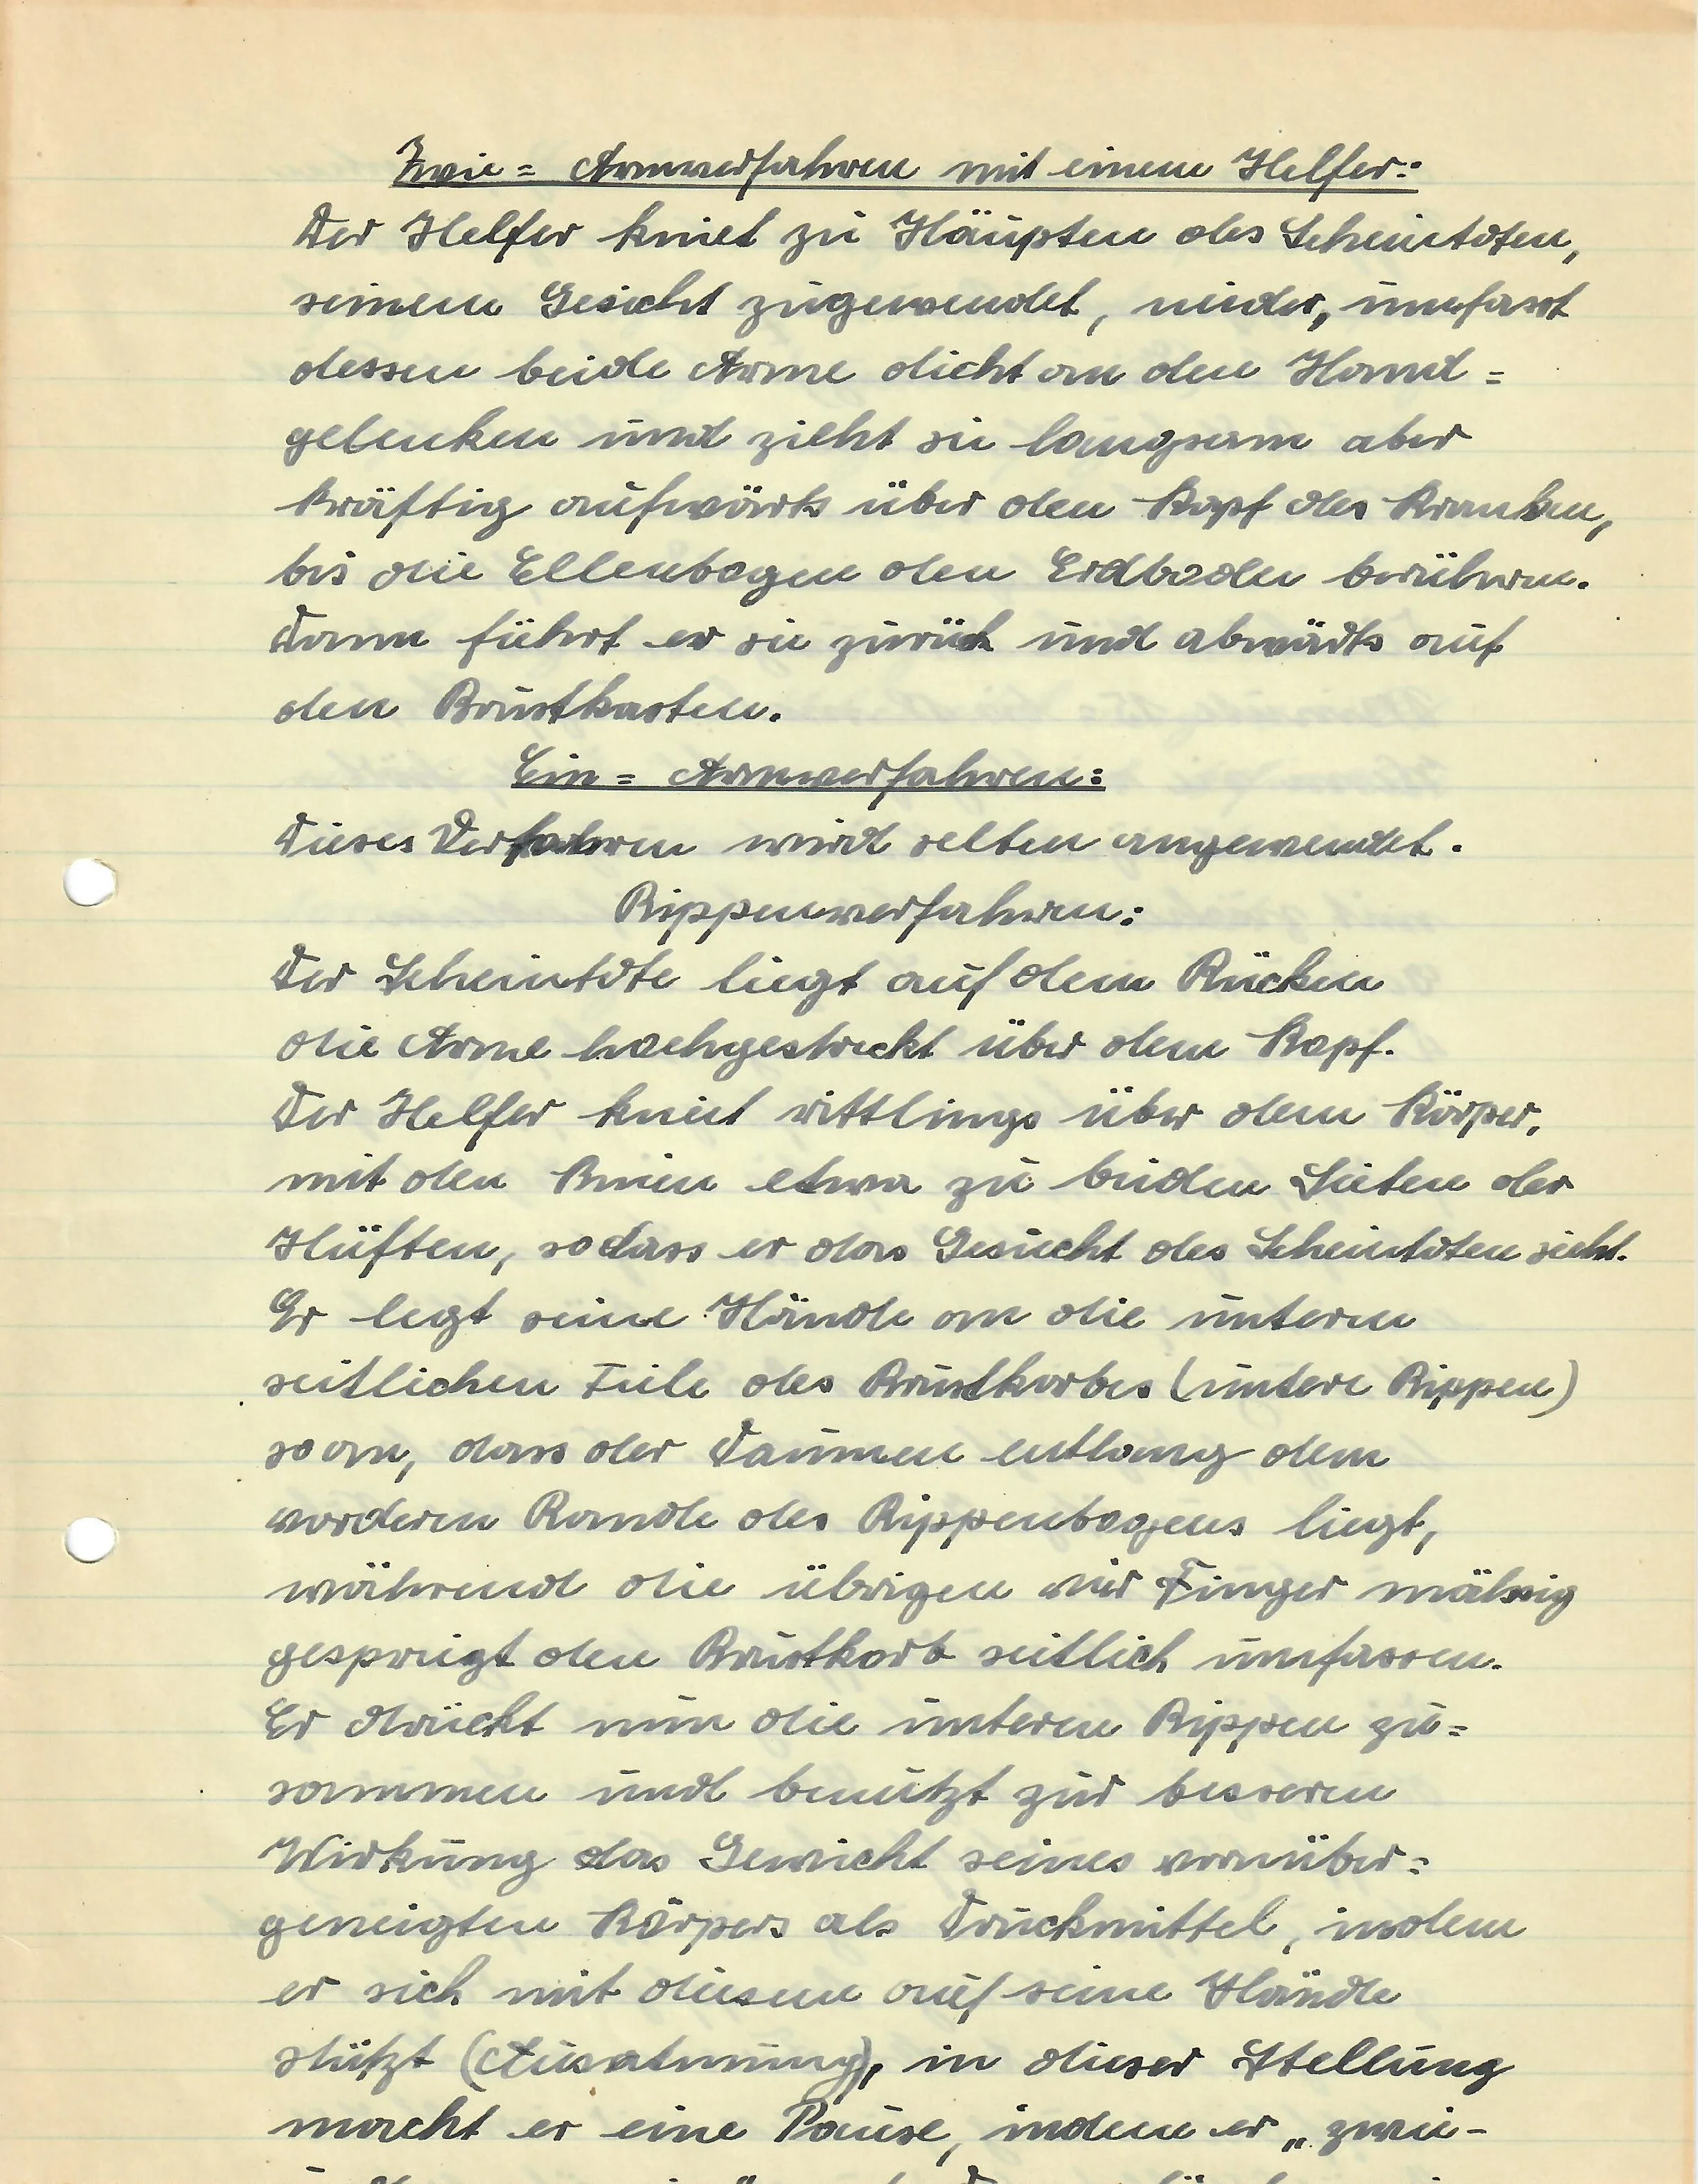 Zwie = Armverfahren mit einem Helfer:
Der Helfer kniet zu Häupten des Scheintoten,
seinem Gesicht zugewendet, nieder, umfasst
dessen beide Arme dicht an den Hand =
gelenken und zieht sie langsam aber
kräftig aufwärts über den Kopf des Kranken,
bis die Ellenbogen den Erdboden berühren.
Dann führt er sie zurück und abwärts auf
den Brustkasten.
Ein = Armverfahren:
Dieses Verfahren wird selten angewendet.
Rippenverfahren:
Der Scheintote liegt auf dem Rücken
die Arme hochgestreckt über dem Kopf.
Der Helfer kniet rittlings über dem Körper,
mit den Knien etwa zu beiden Seiten der
Hüften, sodass er das Gesicht des Scheintoten sieht.
Er legt seine Hände an die unteren
seitlichen Teile des Brustkorbes (untere Rippen)
so an, dass der Daumen entlang dem
vorderen Rande des Rippenbogens liegt,
während die übrigen vier Finger mäßig
gespreizt den Brustkorb seitlich umfassen.
Er drückt nun die unteren Rippen zu=
sammen und benutzt zur besseren
Wirkung das Gewicht seines vornüber=
geneigten Körpers als Druckmittel, indem
er sich mit diesem auf seine Hände
stützt (Ausatmung), in dieser Stellung
macht er eine Pause, indem er „zwei-